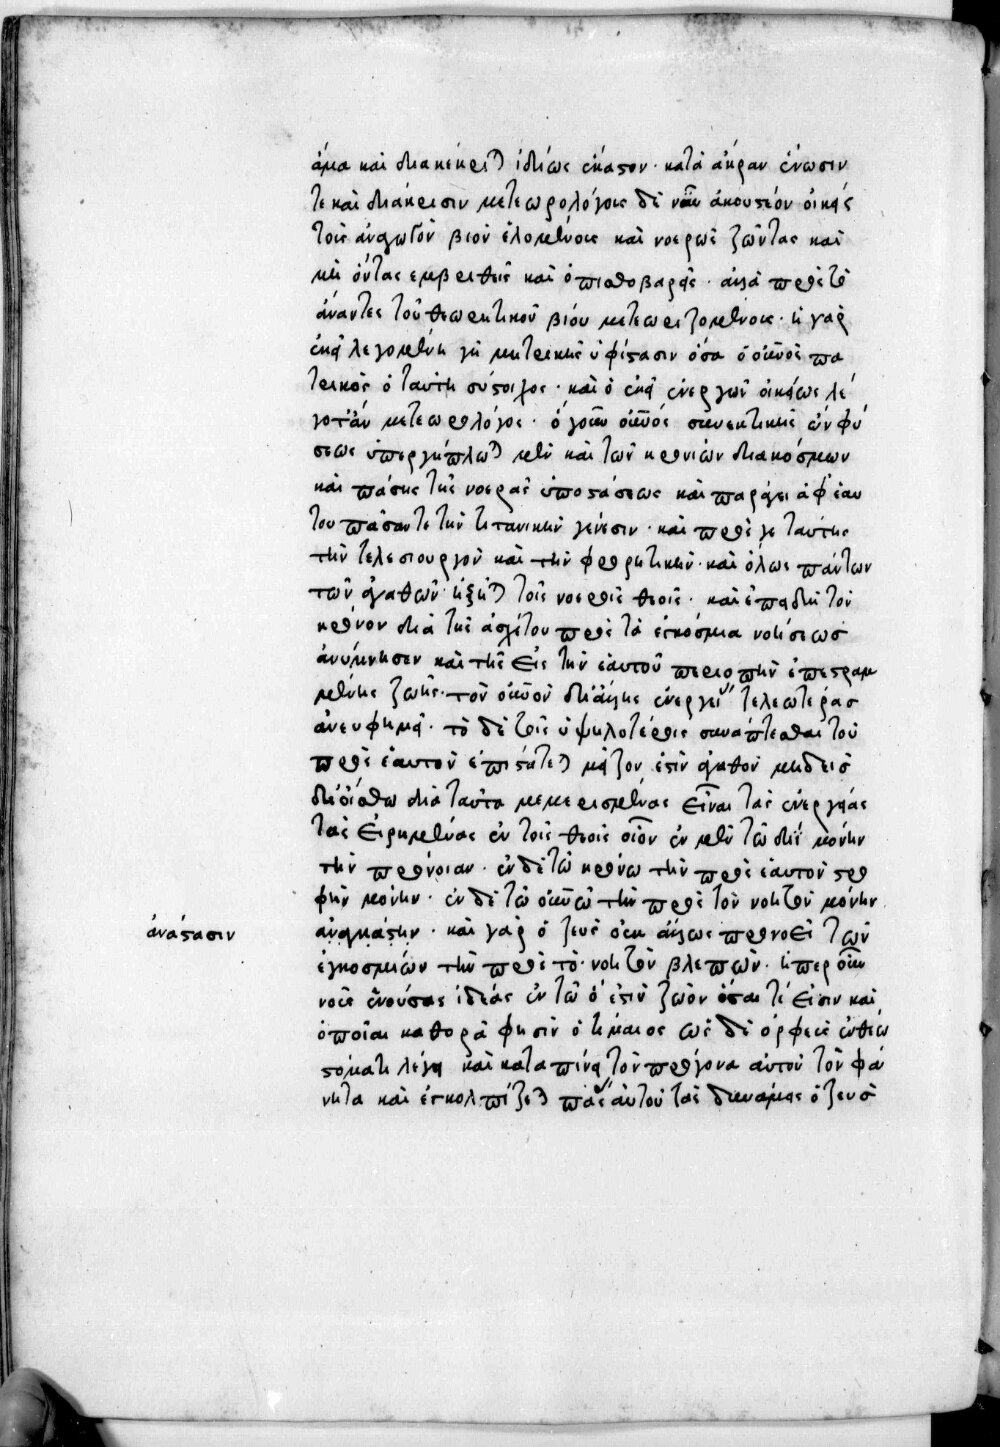 ἅμα καὶ διακέκριται ἰδίως ἕκαστον· κατὰ ἄκραν ἕνωσιν
τε καὶ διάκρισιν μετεωρολόγοις δὲ νῦν ἀκουστέον οἰκείως
τοῖς ἀναγωγὸν βίον ἑλομένοις καὶ νοερῶς ζῶντας καὶ
μὴ ὄντας ἐμβριθεῖς καὶ ὀπισθοβαρεῖς· ἀλλὰ πρὸς τὸ
ἄναντες τοῦ θεωρητικοῦ βίου μετεωριζομένοις· ἡ γὰρ
ἐκεῖ λεγομένη γῆ μητρικῶς ὑφίστησιν ὅσα ὁ οὐρανὸς πα
τρικῶς ὁ ταύτῃ σύστοιχος· καὶ ὁ ἐκεῖ ἐνεργῶν οἰκείως λέ
γοιτ' ἂν μετεωρολόγος· ὁ γοῦν οὐρανός συνεκτικῆς ὢν φύ
σεως ὑπερήπλωται μὲν καὶ τῶν κρονίων διακόσμων
καὶ πάσης τῆς νοερᾶς ὑποστάσεως καὶ παράγει ἀφ' ἑαυ
τοῦ πᾶσαν τε τὴν τιτανικὴν γένεσιν· καὶ πρό γε ταύτης
τὴν τελεσιουργὸν καὶ τὴν φρουρητικὴν· καὶ ὅλως πάντων
τῶν ἀγαθῶν ἐξῆρται τοῖς νοεροῖς θεοῖς· καὶ ἐπειδὴ τὸν
κρόνον διὰ τῆς ἀσχέτου πρὸς τὰ ἐγκόσμια νοήσεως
ἀνύμνησεν καὶ τῆς εἰς τὴν ἑαυτοῦ περιωπὴν ἐπεστραμ
μένης ζωῆς· τὸν οὐρανὸν δι' ἄλλης ἐνεργείας τελεωτέρας
ἀνευφημεῖ· τὸ δὲ τοῖς ὑψηλοτέροις συνάπτεσθαι τοῦ
πρὸς ἑαυτὸν ἐπιστρέφεται μεῖζον ἐστὶν ἀγαθὸν μηδεὶς
δὲ οἰέσθω διὰ ταῦτα μεμερισμένας εἶναι τὰς ἐνεργείας
τὰς εἰρημένας ἐν τοῖς θεοῖς οἷον ἐν μὲν τῷ διῒ μόνην
τὴν πρόνοιαν· ἐν δὲ τῷ κρόνῳ τὴν πρὸς ἑαυτὸν στρο
φὴν μόνην· ἐν δὲ τῷ οὐρανῷ τὴν πρὸς τὸν νοητὸν μόνην
ἀνάστασιν
ἀναγκάσην· καὶ γὰρ ὁ ζεὺς οὐκ ἄλλως προνοεῖ τῶν
ἐγκοσμίων τὴν πρὸς τὸ νοητὸν βλέπων· ᾗπερ οὖν
νοῦς ἐνούσας ἰδέας ἐν τῷ ὅ ἐστιν ζῶον ὅσαι τέ εἰσιν καὶ
ὁποῖαι καθορᾷ φησὶν ὁ τίμαιος ὡς δὲ ὀρφεὺς ἐνθέῳ
στόματι λέγει καὶ καταπίνει τὸν πρόγονα αὐτοῦ τὸν φά
νητα καὶ ἐγκολπίζεται πάσας αὐτοῦ τὰς δυνάμεις ὁ ζεὺς